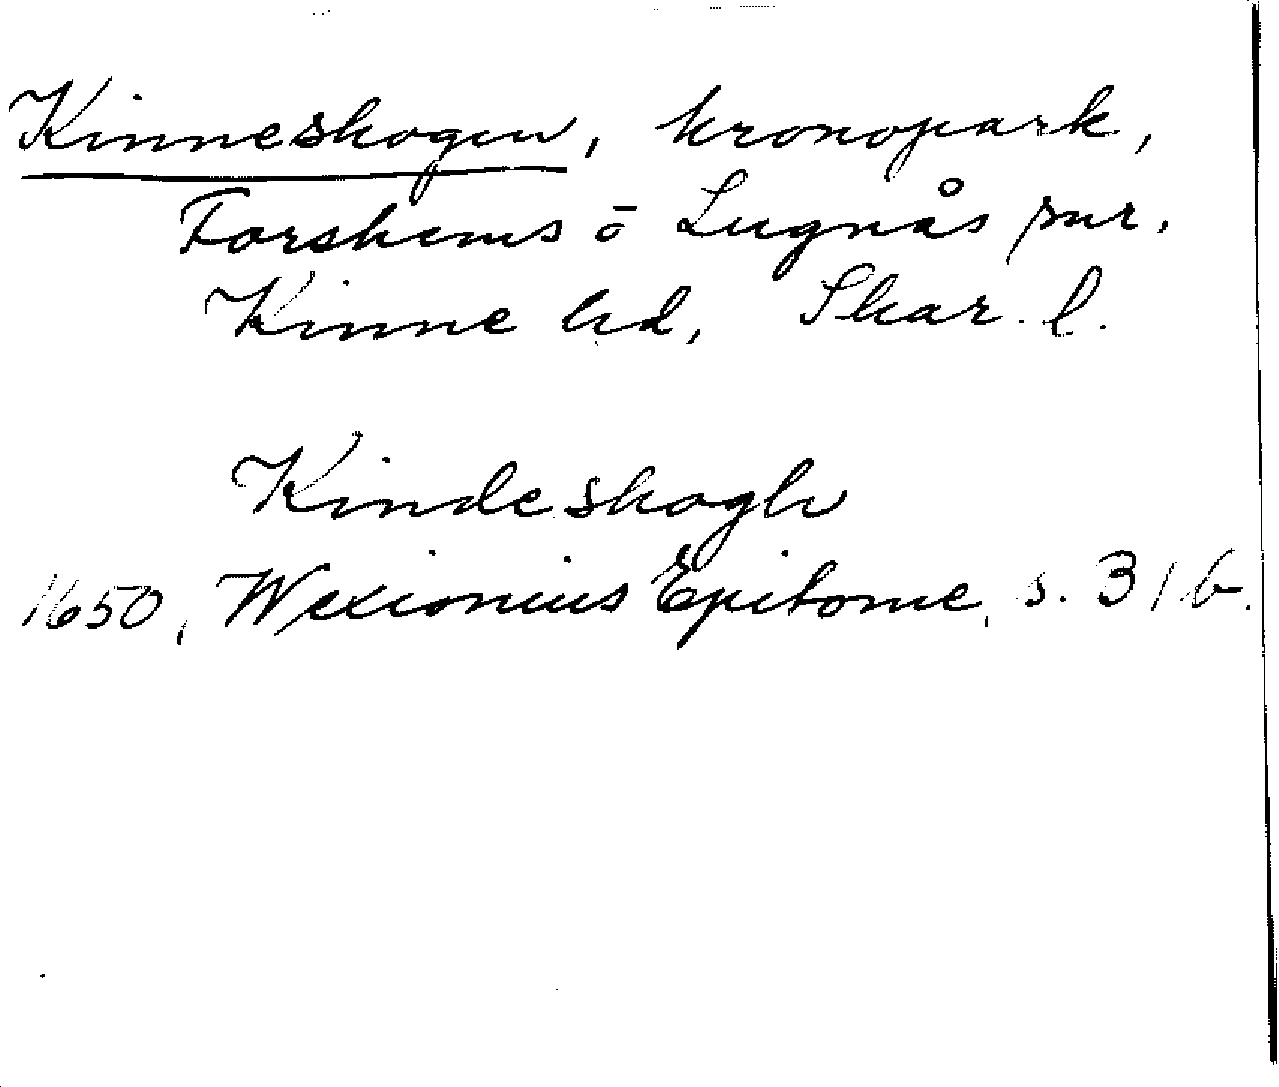 Kinneskogen, kronopark,
Forshems ō Lugnås snr.
Kinne hd, Skar. l.
Kindeskogh
1650, Wexionius Epitome, s. 31 b.